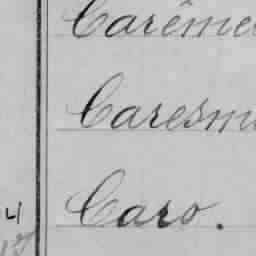 Carême
Caresm
Caro.